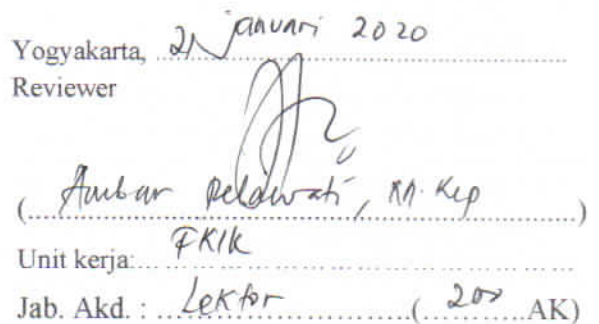 Yogyakarta, 21 januari 2020
Reviewer
(Ambar Relawati, M. Kep)
Unit kerja: FKIK
Jab. Akd. : Lektor (200 AK)